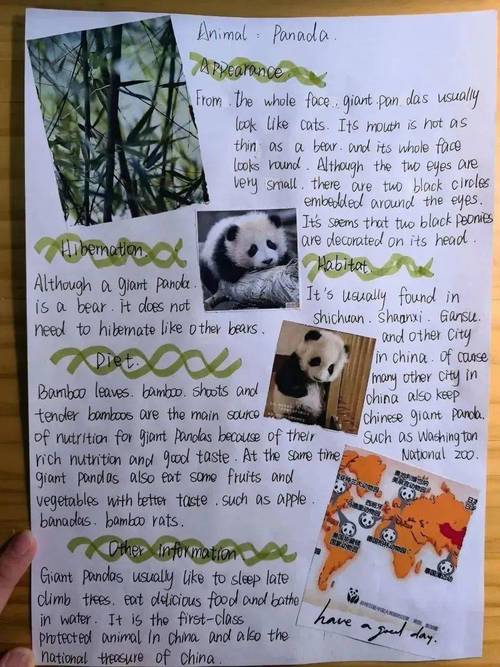 Animal : Panada.
Appearance.
From the whole face, giant pan das usually
look like cats. Its mouth is not as
thin as a bear. and its whole face
looks round. Although the two eyes are
very small. there are two black circles
embedded around the eyes.
It's seems that two black peonies
are decorated on its head.
Hibernation
Although a giant panda.
is a bear. it does not
need to hibernate like other bears.
Habitat
It's usually found in
Shichuan. Shaanxi. Gansu.
and other City
in china. Of cause
many other city in
china also keep
chinese giant panda.
Such as Washington
National zoo.
Diet.
Bamboo leaves. bamboo. shoots and
tender bamboos are the main source
of nutrition for giant pandas because of their
rich nutrition and good taste. At the same time
giant pandas also eat some fruits and
vegetables with better taste. such as apple.
banadas. bamboo rats.
Other Information
Giant pandas usually like to sleep late
climb trees. eat delicious food and bathe
in water. It is the first-class
protected animal In china and also the
national treasure of china.
have a good day.